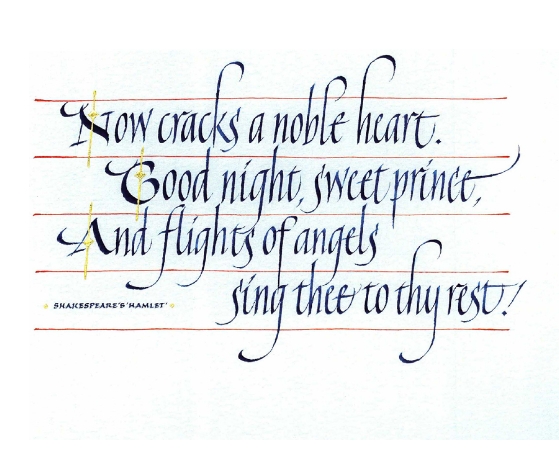 Now cracks a noble heart.
Good night, sweet prince,
And flights of angels
sing thee to thy rest!
SHAKESPEARE'S 'HAMLET'